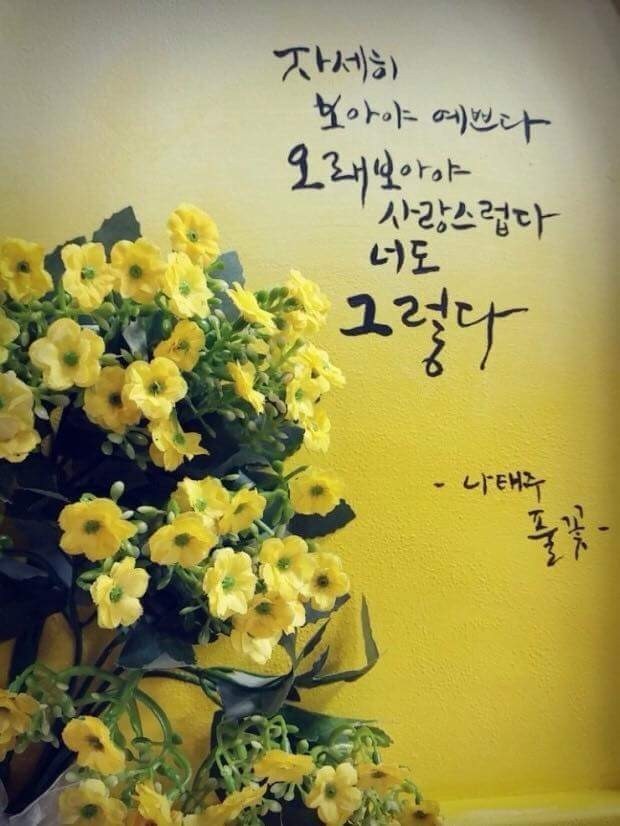 자세히
보아야 예쁘다
오래보아야
사랑스럽다
너도
그렇다
- 나태주
풀꽃 -